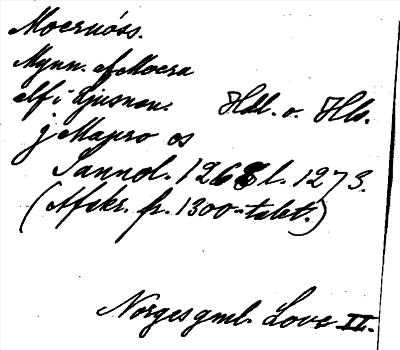 Moeruóss.
Mynn. af Moera
elf i Ljusnan. Hdl. o. Hls.
j Mæro os
Sannol. 1268 l. 1273.
(Afskr. fr. 1300-talet.)
Norges gml. Love II.